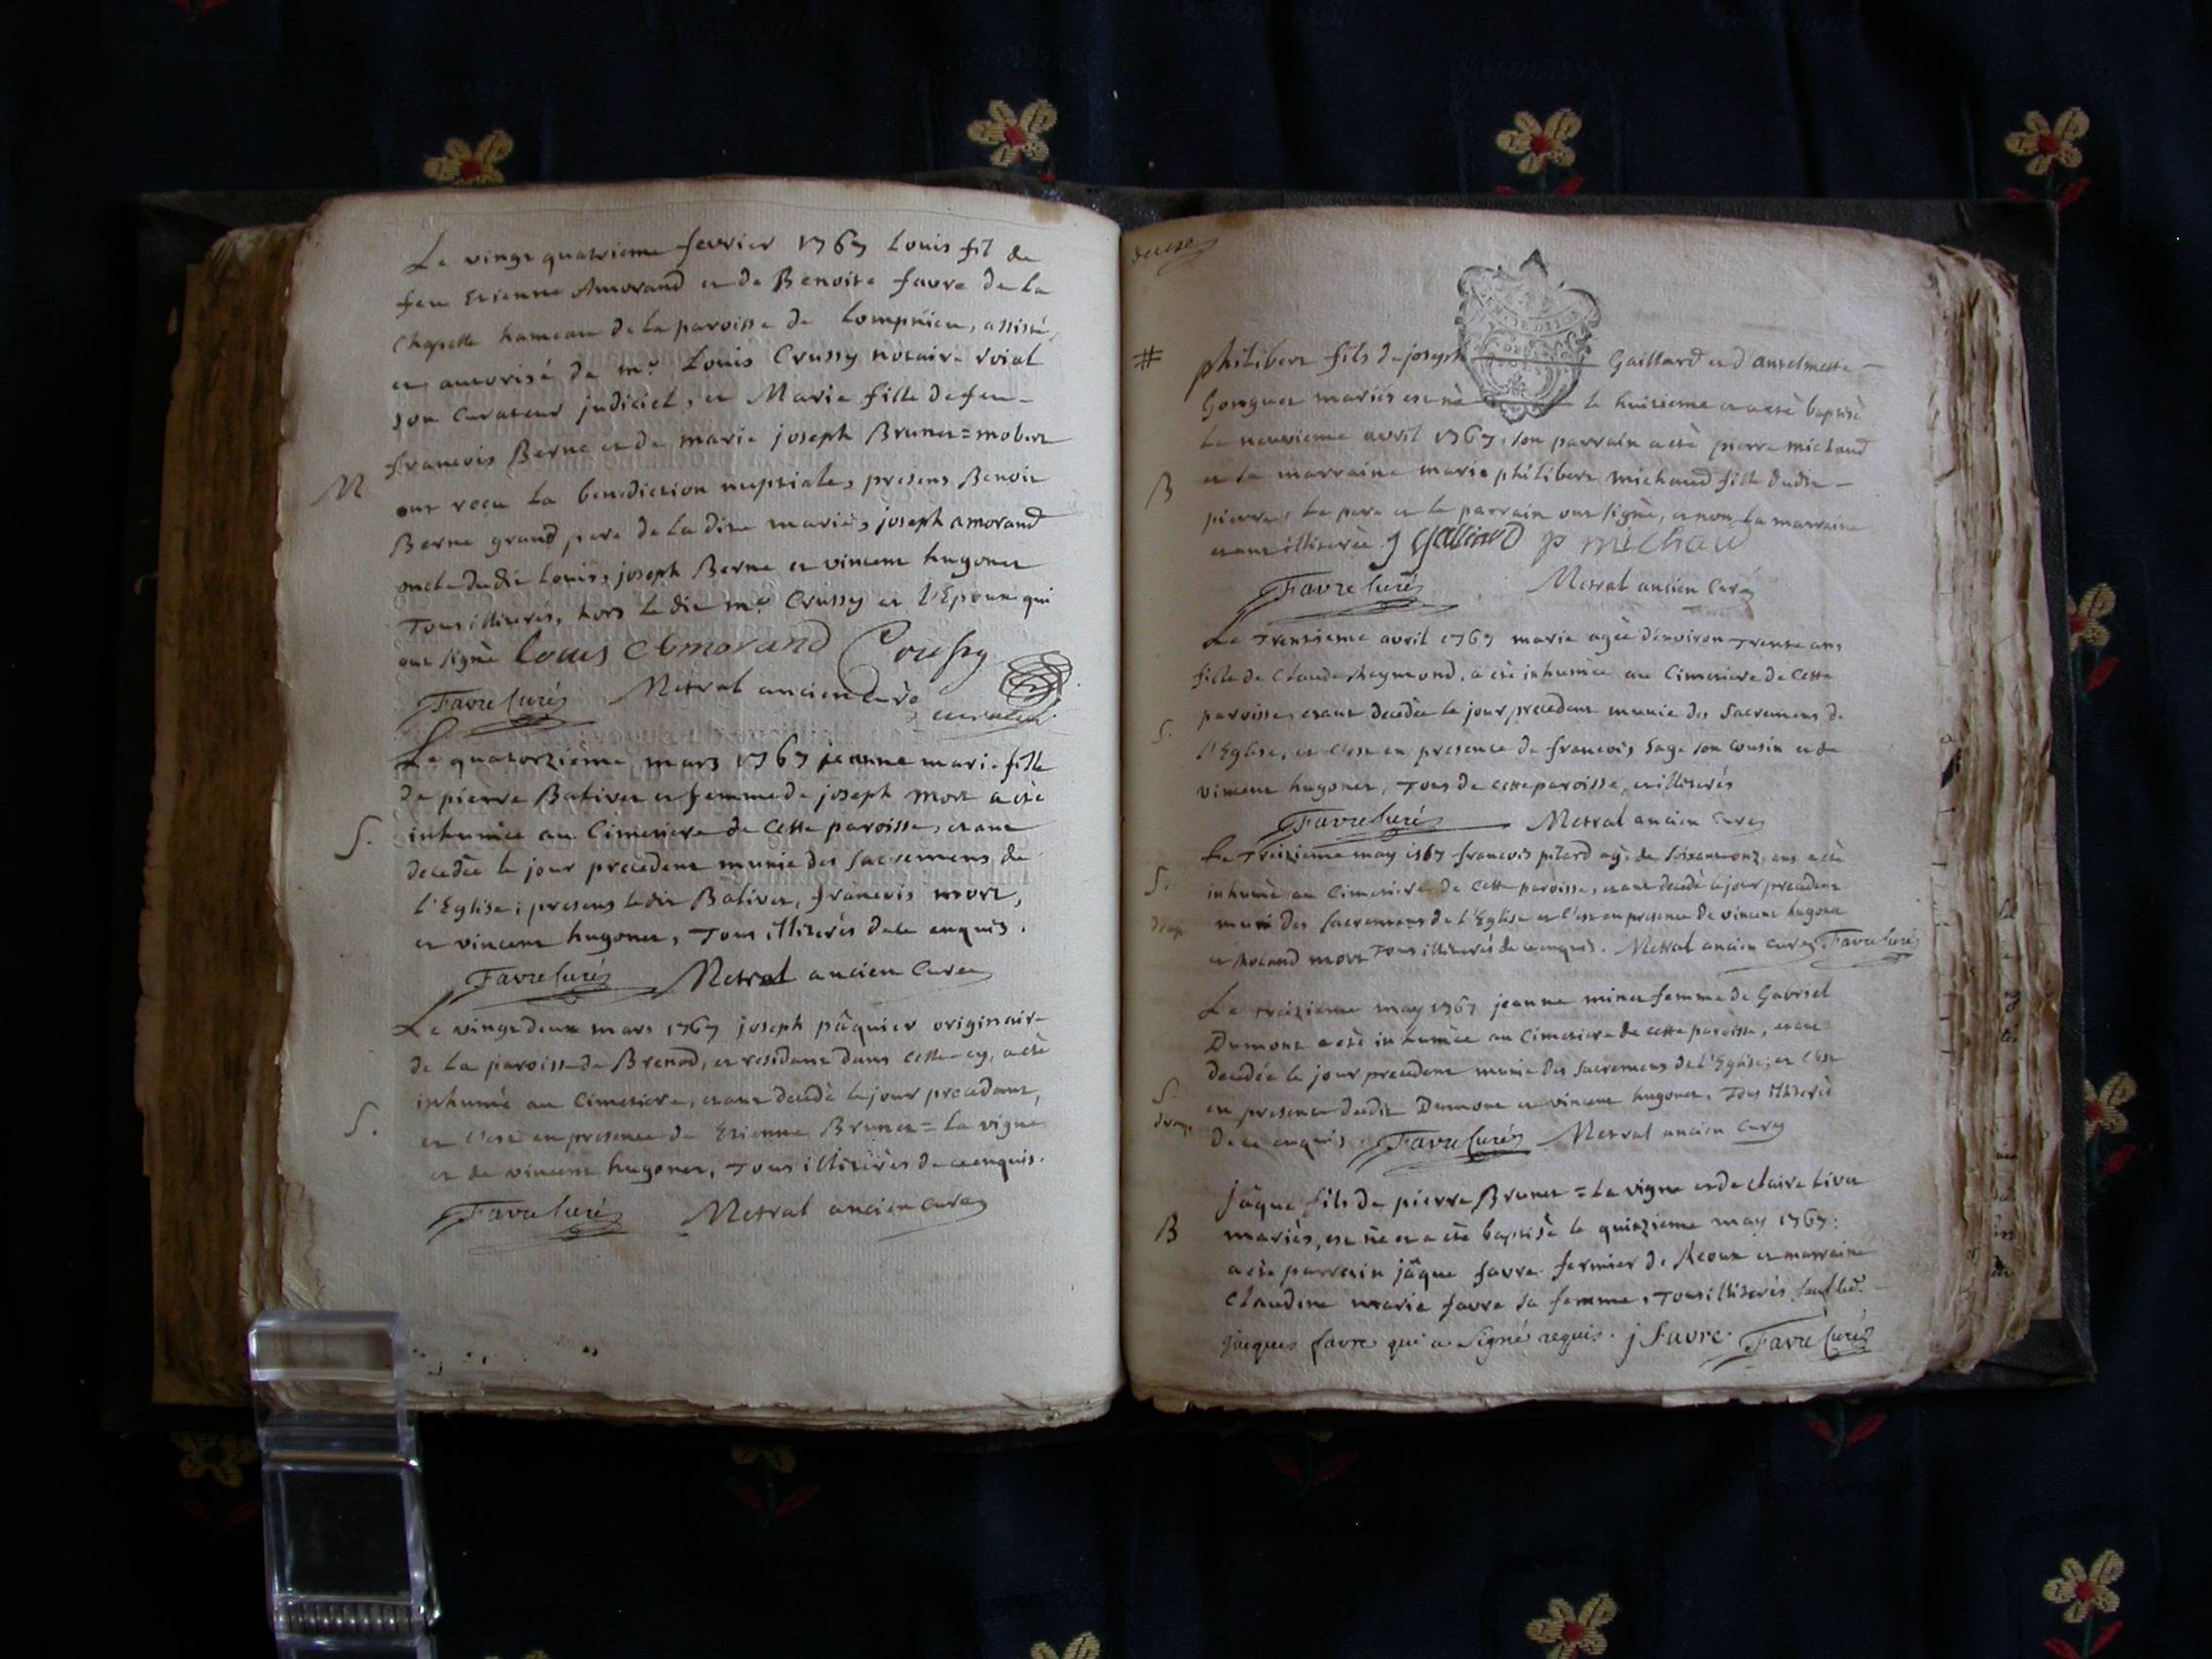 Le vingt quatrieme fevrier 1767 Louis fil de
feu Etienne Amorand et de Benoite favre de la
Chapelle hameau de la paroisse de Lompnieu, assisté
et autorisé de me. Louis Crussy notaire roial
son curateur judiciel, et Marie fille de feu
francois Berne et de marie joseph Brunet=mobert
M
ont recu la benediction nuptiale, presens Benoit
Berne grand pere de la dite mariée, joseph amorand
oncle dudit Louis, joseph Berne et vincent hugonet
Tous illiterés, hors le dit me. Crussy et l'Epoux qui
ont signé Louis Amorand Crussy
Favre Curé Metral ancien Curé curateur
Le quatorzieme mars 1767 jeanne marie fille
de pierre Bativet et femme de joseph mort a eté
S. inhumée au Cimetiere de cette paroisse, etant
decedée le jour precedent munie des Sacremens de
l'Eglise; presens ledit Bativet, francois mort,
et vincent hugonet, Tous illiterés de ce enquis.
Favre Curé Metral ancien Curé
Le vingt deux mars 1767 joseph pâquier originaire
de la paroisse de Brenod, et residant dans cette cy, a eté
inhumé au Cimetiere, etant decedé le jour precedant,
S. et c'est en presence de Etienne Brunet=la vigne
et de vincent hugonet, Tous illiterés de ce enquis.
Favre Curé Metral ancien Curé
# philibert fils de joseph Gaillard et d'anselmette
Gonguet mariés est né le huitieme et a eté baptisé
le neuvieme avril 1767, son parrain a eté pierre michaud
B et la marraine marie philibert michaud fille dudit
pierre, le pere et le parrain ont signé, et non la marraine
etant illiterée. J Galliard p michaud
Favre Curé Metral ancien Curé
Le Trentieme avril 1767 marie agée d'environ Trente ans
fille de Claude Reymond, a eté inhumée au Cimetiere de Cette
paroisse, etant decedée le jour precedent munie des Sacremens de
S. l'Eglise, et c'est en presence de francois Sage son cousin et de
vincent hugonet, Tous de cette paroisse, et illiterés
Favre Curé Metral ancien Curé
Le Treizieme may 1767 francois pitard agé de soixante onze ans a eté
S. inhumé au Cimetiere de Cette paroisse, etant decedé le jour precedent
drap muni des Sacremens de l'Eglise et c'est en presence de vincent hugonet
et Roland mort Tous illiterés de ce enquis. Metral ancien Curé Favre Curé
Le treizieme may 1767 jeanne minet femme de Gabriel
Dumont a eté inhumée au Cimetiere de cette paroisse, etant
decedée le jour precedent munie des Sacremens de l'Eglise; et c'est
S. en presence dudit Dumont et vincent hugonet. Tous illiterés
drap de ce enquis. Favre Curé Metral ancien Curé
jâque fils de pierre Brunet=la vigne et de claire Livet
B mariés, est né et a eté baptisé le quinzieme may 1767:
a eté parrain jâque favre fermier de et marraine
Claudine marie favre sa femme, Tous illiterés sauf led.
jacques favre qui a signé requis. j favre. Favre Curé